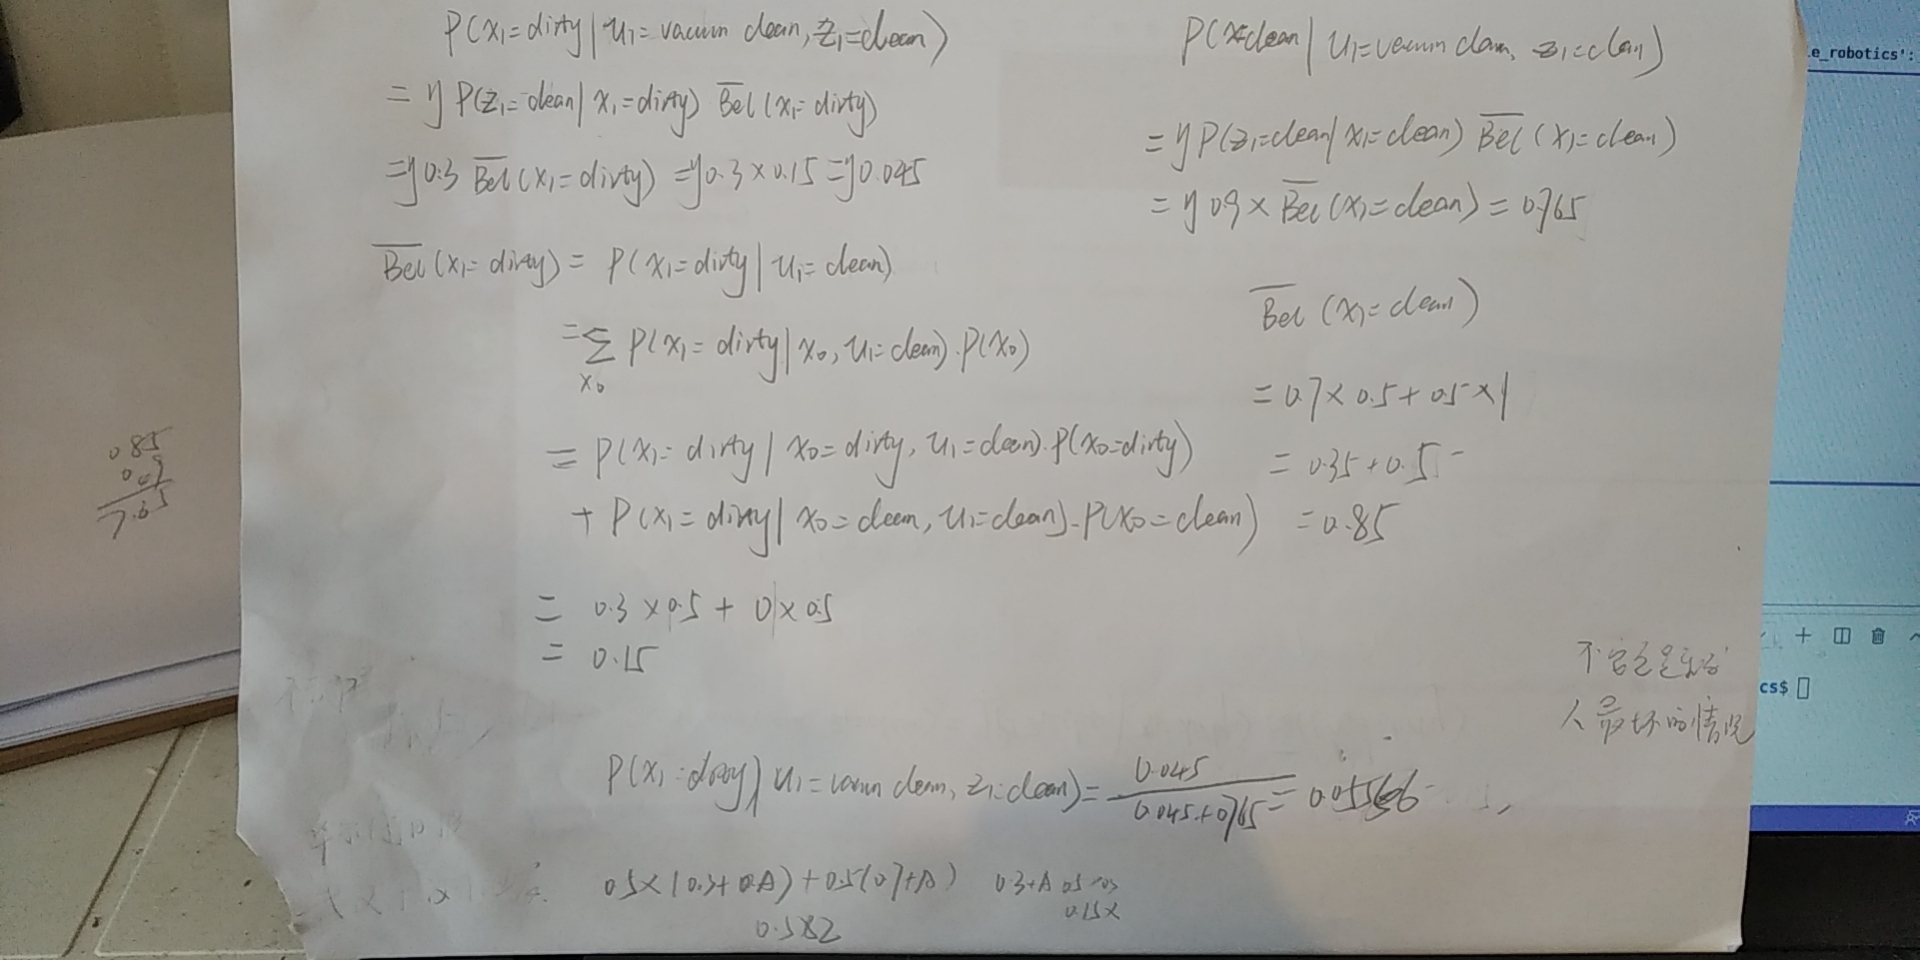 P(x₁=dirty | u₁=vacuum clean, z₁=clean)
= η P(z₁=clean | x₁=dirty) B̅e̅l̅(x₁=dirty)
=η0.3 B̅e̅l̅(x₁=dirty) =η0.3×0.15=η0.045
B̅e̅l̅(x₁=dirty) = P(x₁=dirty | u₁=clean)
=Σ P(x₁=dirty | x₀, u₁=clean).P(x₀)
x₀
= P(x₁=dirty | x₀=dirty, u₁=clean).P(x₀=dirty)
+ P(x₁=dirty | x₀=clean, u₁=clean).P(x₀=clean)
= 0.3×0.5+ 0×0.5
= 0.15
P(x=clean | u₁=vacuum clean, z₁=clean)
= η P(z₁=clean | x₁=clean) B̅e̅l̅(x₁=clean)
= η 0.9× B̅e̅l̅(x₁=clean) = 0.765
B̅e̅l̅(x₁=clean)
= 0.7×0.5+0.5×1
= 0.35+0.5
= 0.85
P(x₁=dirty | u₁=vacuum clean, z₁=clean)= 0.045 / 0.045+0.765 =
0.5×(0.3+ A)+0.5(0.7+A)
0.3+A
0.15×
0.582
0.85
0.9
7.65
人最坏的情况
e_robotics':
cs$